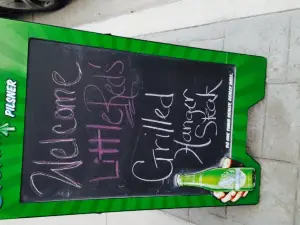 PILSNER
Welcome
Little Red's
Grilled
Hanger
Steak